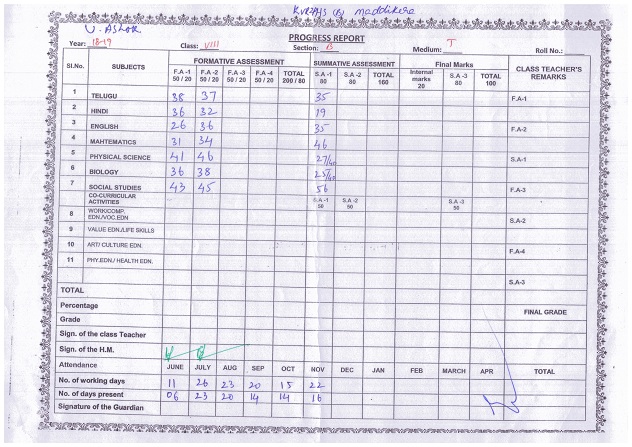 KVRZPHS (B) Maddikera
U. Ashok
PROGRESS REPORT
Year: 18-19 Class: VIII Section: B Medium: T Roll No.:
Sl.No. SUBJECTS FORMATIVE ASSESSMENT SUMMATIVE ASSESSMENT Final Marks CLASS TEACHER'S REMARKS
F.A -1 50 / 20 F.A -2 50 / 20 F.A -3 50 / 20 F.A -4 50 / 20 TOTAL 200 / 80 S.A -1 80 S.A -2 80 TOTAL 160 Internal marks 20 S.A -3 80 TOTAL 100
1 TELUGU 38 37 35 F.A-1
2 HINDI 36 32 19
3 ENGLISH 26 36 35 F.A-2
4 MAHTEMATICS 31 34 46
5 PHYSICAL SCIENCE 41 46 27/40 S.A-1
6 BIOLOGY 36 38 25/40
7 SOCIAL STUDIES 43 45 56 F.A-3
CO-CURRICULAR ACTIVITIES S.A -1 50 S.A -2 50 S.A -3 50
8 WORK/COMP. EDN./VOC.EDN S.A-2
9 VALUE EDN./LIFE SKILLS
10 ART/ CULTURE EDN. F.A-4
11 PHY.EDN./ HEALTH EDN.
S.A-3
TOTAL
Percentage FINAL GRADE
Grade
Sign. of the class Teacher
Sign. of the H.M.
Attendance JUNE JULY AUG SEP OCT NOV DEC JAN FEB MARCH APR TOTAL
No. of working days 11 26 23 20 15 22
No. of days present 06 23 20 14 14 16
Signature of the Guardian